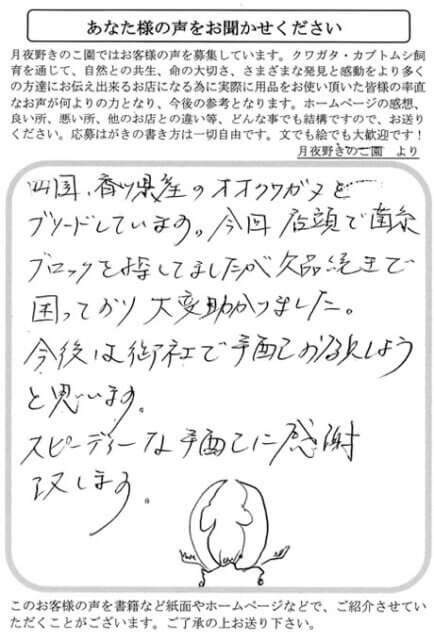 あなた様の声をお聞かせください
月夜野きのこ園ではお客様の声を募集しています。クワガタ・カブトムシ飼
育を通じて、自然との共生、命の大切さ、さまざまな発見と感動をより多く
の方達にお伝え出来るお店になる為に実際に用品をお使い頂いた皆様の率直
なお声が何よりの力となり、今後の参考となります。ホームページの感想、
良い所、悪い所、他のお店との違い等、どんな事でも結構ですので、お送り
ください。応募はがきの書き方は一切自由です。文でも絵でも大歓迎です！
月夜野きのこ園　より
四国、香川県産のオオクワガタを
ブリードしています。今回 店頭で菌糸
ブロックを探してましたが欠品続きで
困っており 大変助かりました。
今後は御社で手配お願しよう
と思います。
スピーディーな手配に感謝
致します。
このお客様の声を書籍など紙面やホームページなどで、ご紹介させてい
ただくことがございます。ご了承の上お送り下さい。